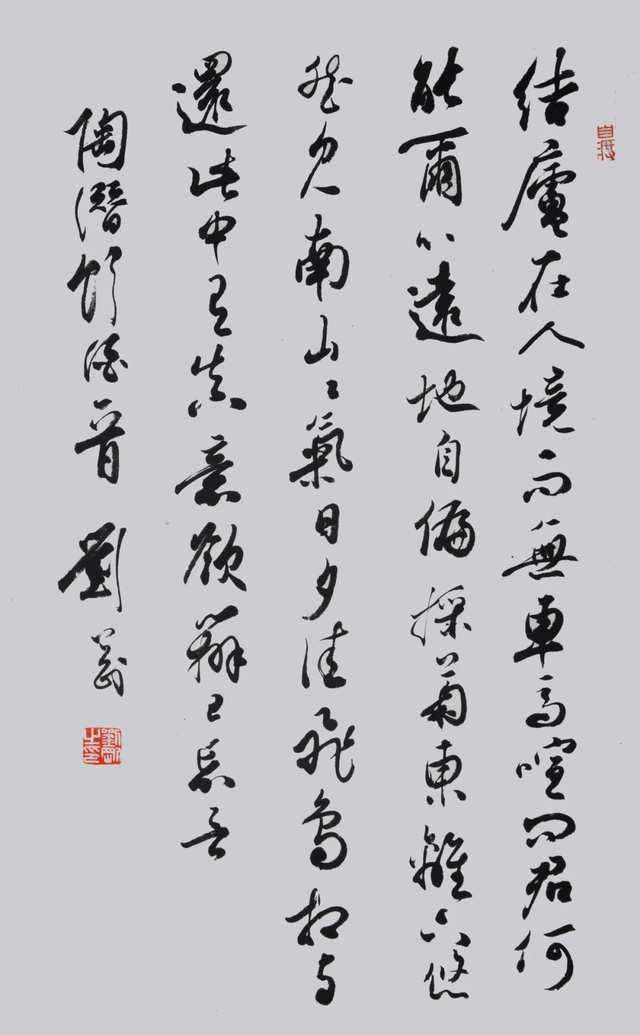 結廬在人境而無車馬喧問君何
能爾心遠地自偏採菊東籬下悠
然見南山々氣日夕佳飛鳥相與
還此中有真意欲辯已忘言
陶潛飲酒首 劉